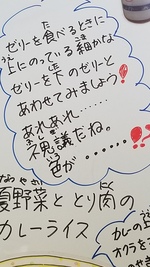 ゼリーを食べるときに
上にのっている細かな
ゼリーを下のゼリーと
あわせてみましょう!
あれあれ……
不思議だね。
色が……!!
夏野菜ととり肉の
カレーライス
カレーの
オクラを